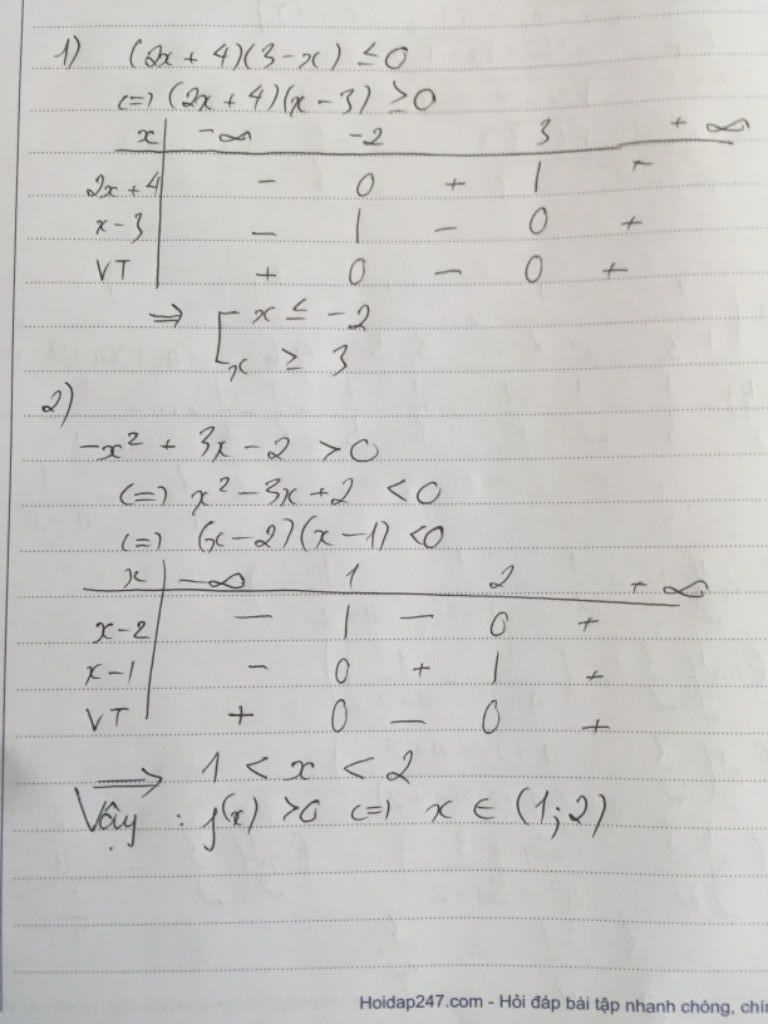 1) (2x + 4)(3 - x) ≤ 0
(=) (2x + 4)(x - 3) ≥ 0
x | -∞ -2 3 + ∞
2x + 4 | - 0 + | +
x - 3 | - | - 0 +
VT | + 0 - 0 +
⇒ [ x ≤ -2
x ≥ 3
2)
-x² + 3x - 2 > 0
(=) x² - 3x + 2 < 0
(=) (x - 2)(x - 1) < 0
x | -∞ 1 2 + ∞
x - 2 | - | - 0 +
x - 1 | - 0 + | +
VT | + 0 - 0 +
⇒ 1 < x < 2
Vậy : f(x) > 0 (=) x ∈ (1; 2)
Hoidap247.com - Hỏi đáp bài tập nhanh chóng, chín